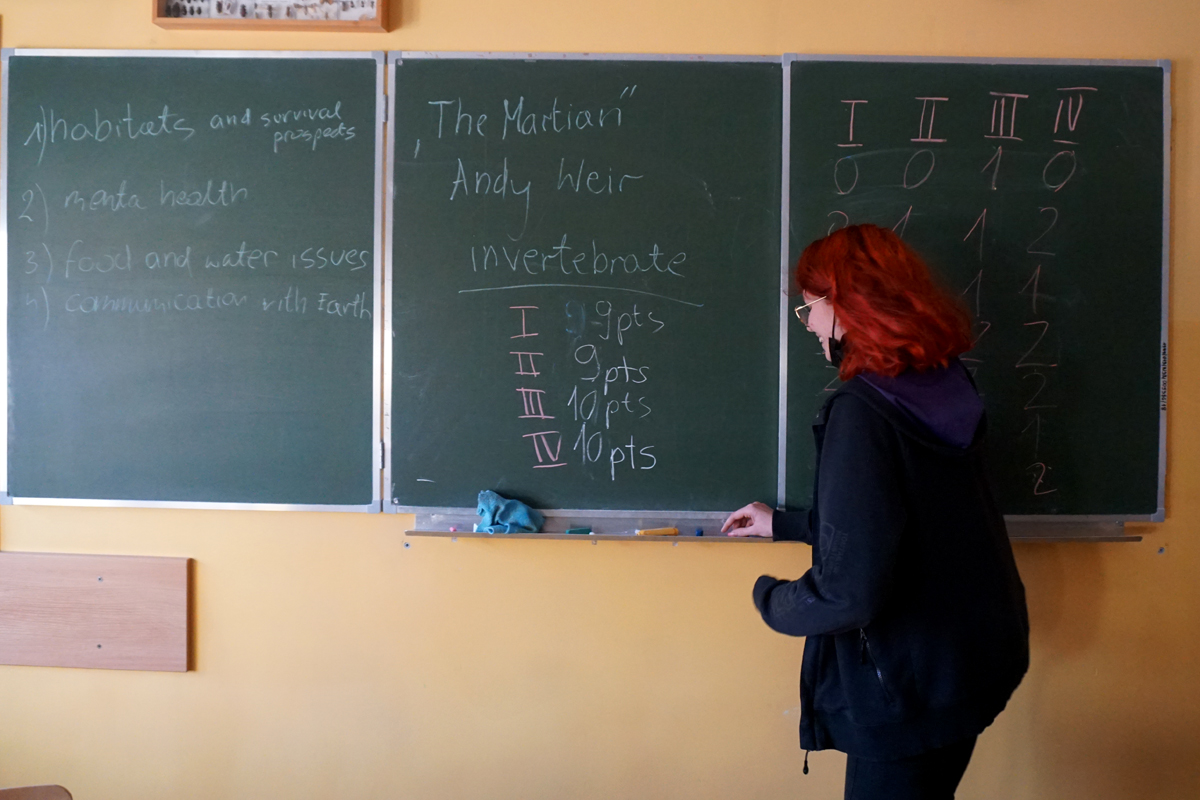 1) habitats and survival
prospects
2) menta health
3) food and water issues
4) communication with Earth
„The Martian”
Andy Weir
invertebrate
I 9pts
II 9pts
III 10pts
IV 10pts
I II III IV
0 0 1 0
2 1 1 2
1 1
2 2
2
1
2